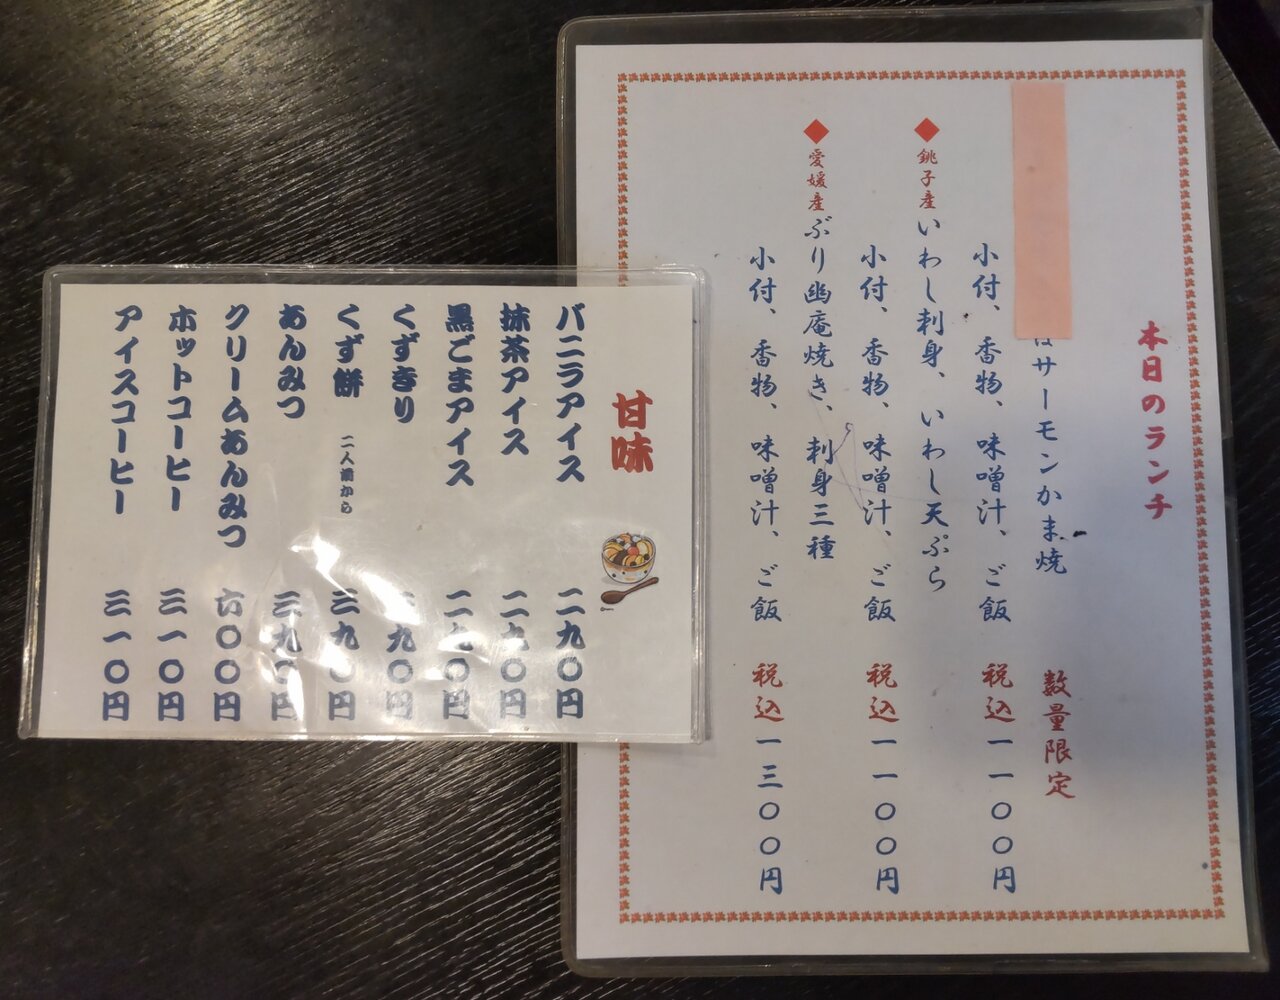 本日のランチ
サーモンかま焼 数量限定
小付、香物、味噌汁、ご飯 税込一一〇〇円
◆銚子産いわし刺身、いわし天ぷら
小付、香物、味噌汁、ご飯 税込一一〇〇円
◆愛媛産ぶり幽庵焼き、刺身三種
小付、香物、味噌汁、ご飯 税込一三〇〇円
甘味
バニラアイス 二九〇円
抹茶アイス 二九〇円
黒ごまアイス 二九〇円
くずきり 九〇円
くず餅 二人前から 三九〇円
あんみつ 三九〇円
クリームあんみつ 六〇〇円
ホットコーヒー 三一〇円
アイスコーヒー 三一〇円